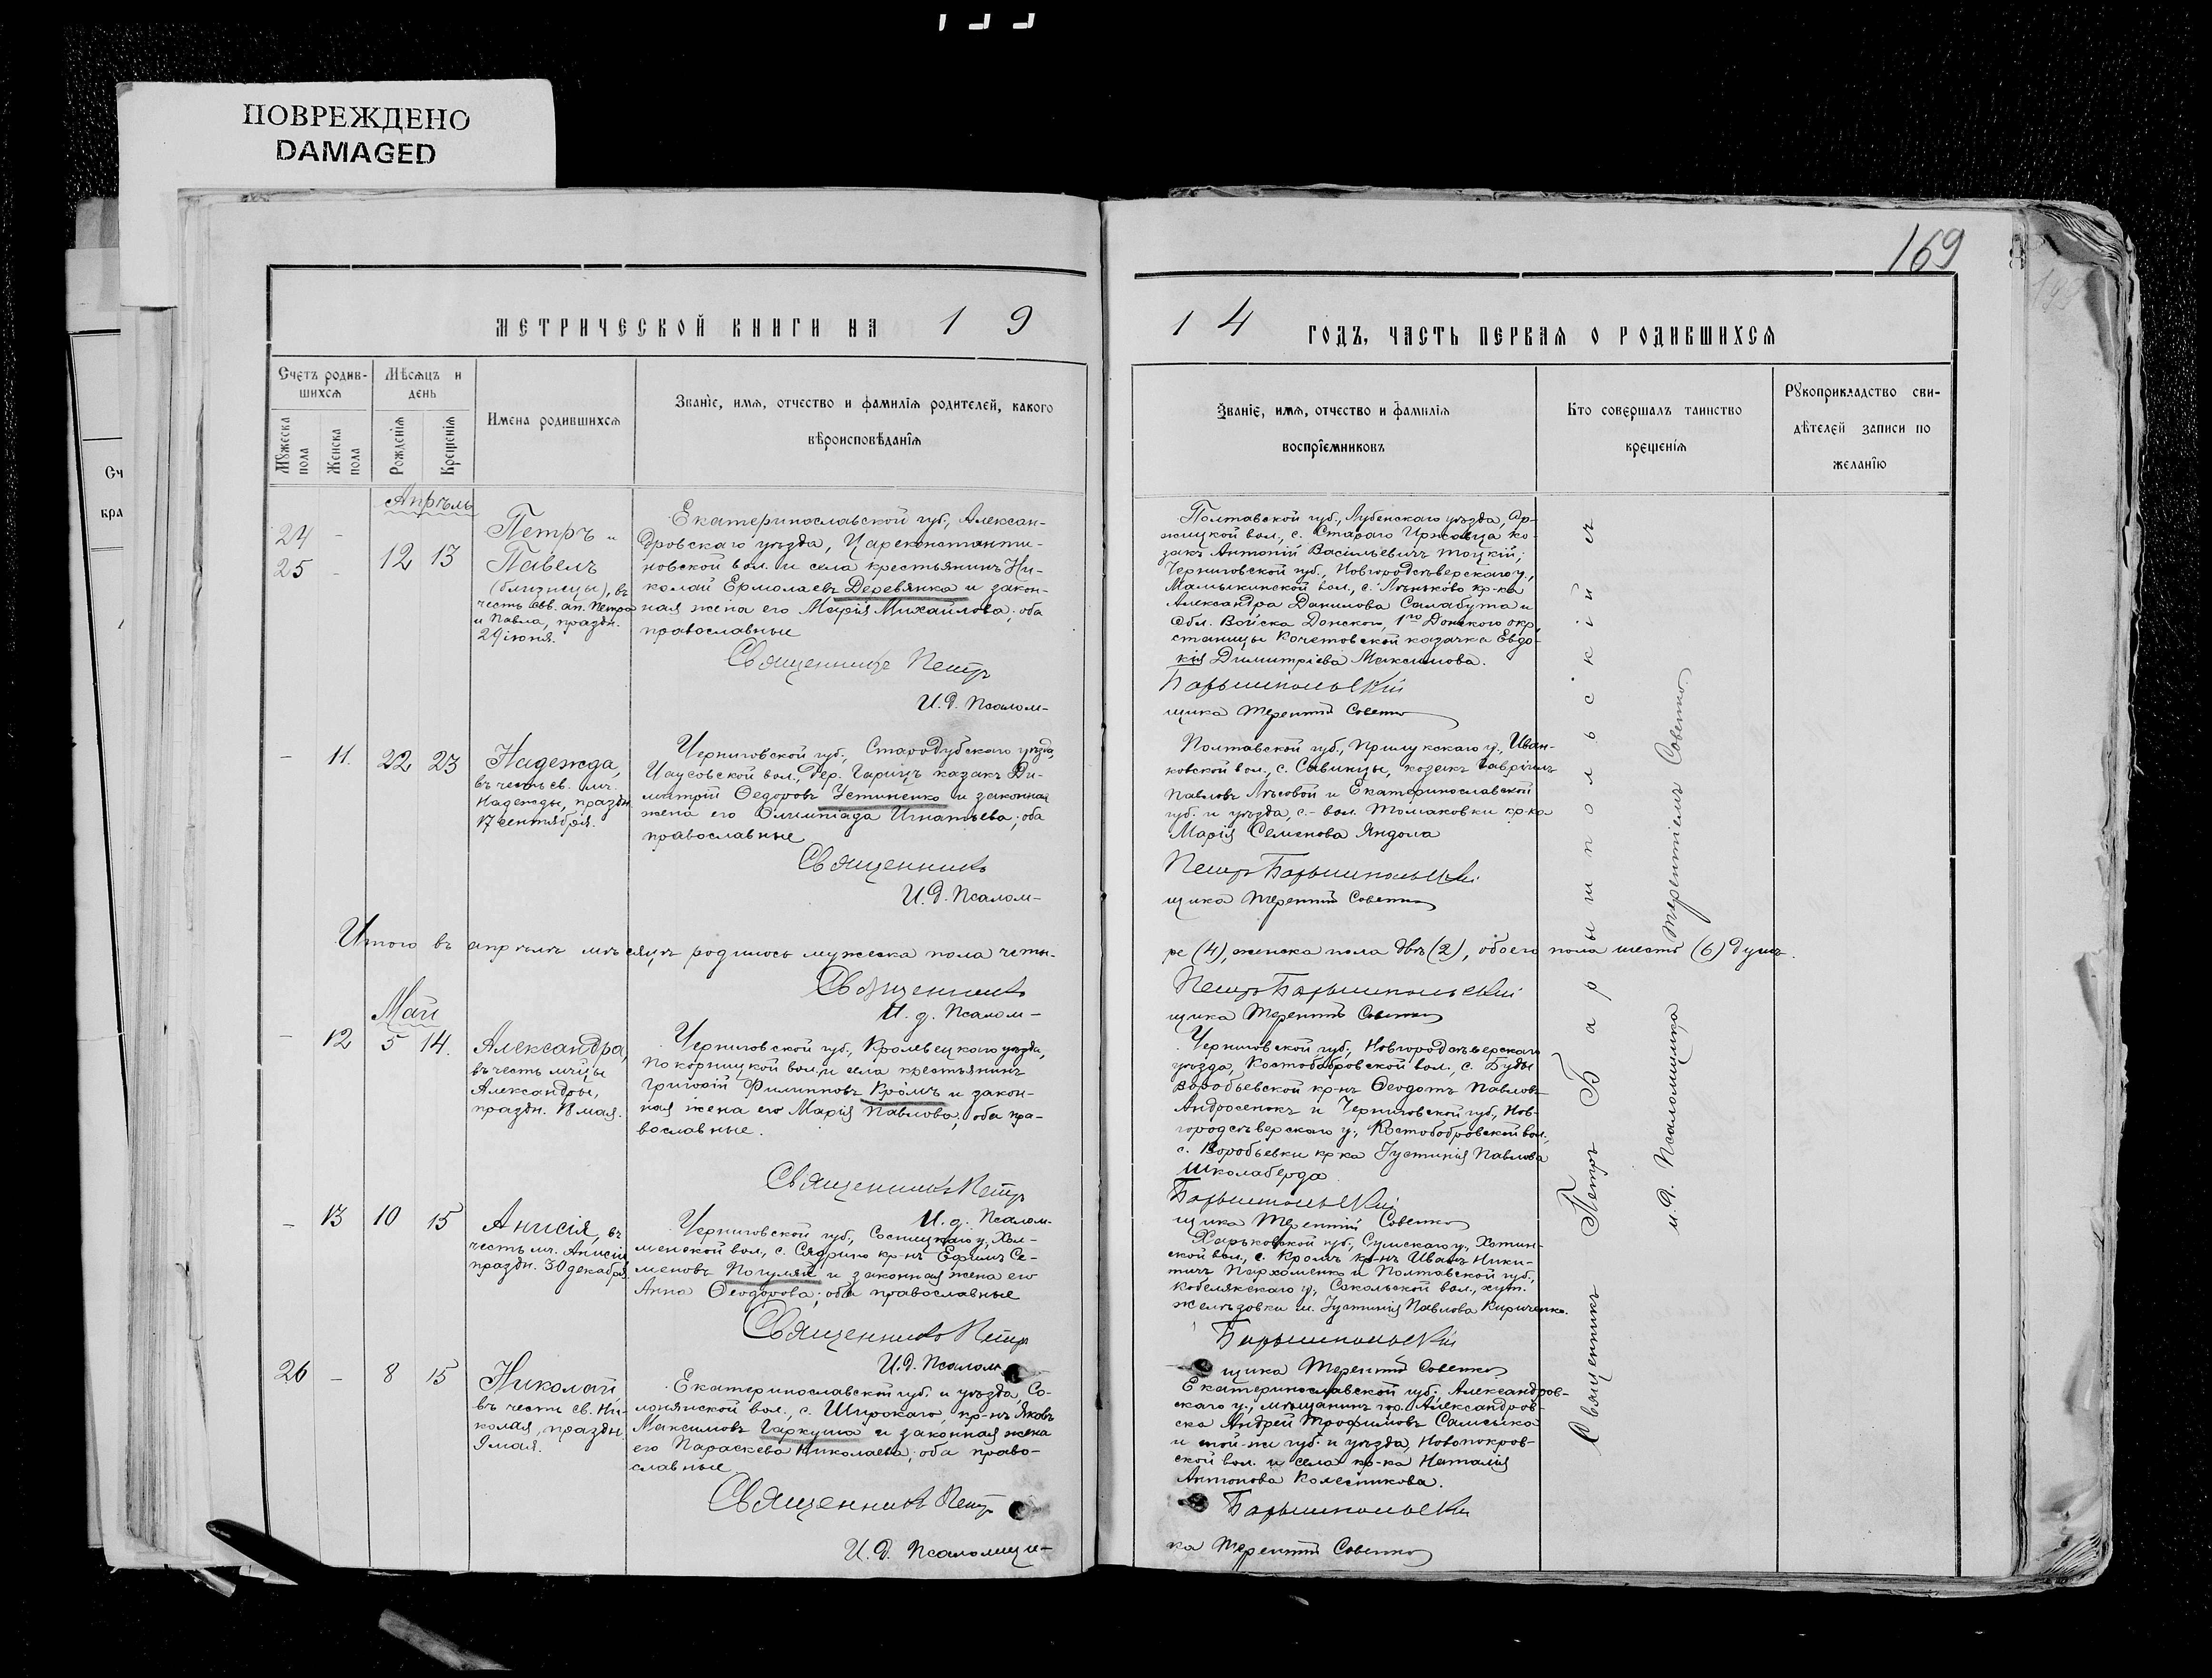 ПОВРЕЖДЕНО
DAMAGED
169
МЕТРИЧЕСКОЙ КНИГИ НА 19
14 ГОДЪ, ЧАСТЬ ПЕРВАЯ О РОДИВШИХСЯ
Счетъ родив-
шихся
Мужеска пола
Женска пола
Мѣсяцъ и
день
Рожденія
Крещенія
Имена родившихся
Званіе, имя, отчество и фамилія родителей, какого
вѣроисповѣданія
Званіе, имя, отчество и фамилія
воспріемниковъ
Кто совершалъ таинство
крещенія
Рукоприкладство сви-
дѣтелей записи по
желанію
Сч
кра
Апрѣль
24 -
25 -
12 13
Петръ и
Павелъ
(близнецы), въ
честь свв. ап. Петра
и Павла, праздн.
29 іюня.
Екатеринославской губ., Алексан-
дровскаго уѣзда, Цареконстанти-
новской вол. и села крестьянинъ Ни-
колай Ермолаевъ Деревянко и закон-
ная жена его Марія Михайлова; оба
православные
Священникъ Петръ
И. д. Псалом-
Полтавской губ., Лубенскаго уѣзда,
вол., с. Стараго ко-
закъ Антоній Васильевичъ Тоцкій;
Черниговской губ., Новгородсѣверскаго у.,
вол., с. кр-ка
Александра Данилова Салабута и
Обл. Войска Донского, 1го Донского окр.
станицы Кочетовской казачка Евдо-
кія Димитріева Максимова.
Барышпольскій
щика Терентій Совенко
- 11. 22 23
Надежда,
въ честь св. мч.
Надежды, праздн.
17 сентября.
Черниговской губ., Стародубскаго уѣзда,
вол., дер. Гарицъ казакъ Ди-
митрій Ѳедоровъ Устиненко и законная
жена его Олимпіада Игнатьева; оба
православные
Священникъ
И. д. Псалом-
Полтавской губ., Прилукскаго у., Иван-
ковской вол., с. Савинцы, козакъ Гавріилъ
Павловъ Лѣсовой и Екатеринославской
губ. и уѣзда, с.- вол. Томаковки кр-ка
Марія Семенова Яндола
Петръ Барышпольскій
щика Терентій Совенко
Итого въ апрѣлѣ мѣсяцѣ родилось мужеска пола четы-
ре (4), женска пола двѣ (2), обоего пола шесть (6) душъ.
Священникъ
Петръ Барышпольскій
И. д. Псалом-
щика Терентій Совенко
Май
- 12 5 14.
Александра,
въ честь мчцы
Александры,
праздн. 18 мая.
Черниговской губ., Кролевецкаго уѣзда,
Покорницкой вол. и села крестьянинъ
Григорій Филипповъ Кромъ и закон-
ная жена его Марія Павлова, оба пра-
вославные.
Священникъ Петръ
И. д. Псалом-
Черниговской губ., Новгородсѣверскаго
уѣзда, Костобобровской вол., с. Буды
Воробьевской кр-нъ Ѳеодотъ Павловъ
Андросенокъ и Черниговской губ., Нов-
городсѣверскаго у., Костобобровской вол.,
с. Воробьевки кр-ка Іустинія Павлова
Школаберда
Барышпольскій
щика Терентій Совенко
- 13 10 15
Анисія, въ
честь мч. Анисіи
праздн. 30 декабря.
Черниговской губ., Сосницкаго у., Хол-
менской вол., с. Сядрино кр-нъ Ефимъ Се-
меновъ Погуляй и законная жена его
Анна Ѳеодорова; оба православные
Священникъ Петръ
И. д. Псалом-
Харьковской губ., Сумскаго у., Хотин-
ской вол., с. Кромъ кр-нъ Иванъ Ники-
тичъ Пархоменко и Полтавской губ.,
Кобелякскаго у., Сокольской вол., хут.
м. Іустинія Павлова Кириченко.
Барышпольскій
щика Терентій Совенко
26 - 8 15
Николай,
въ честь св. Ни-
колая, праздн.
9 мая.
Екатеринославской губ. и уѣзда, Со-
лонянской вол., с. Широкаго, кр-нъ Яковъ
Максимовъ Гаркуша и законная жена
его Параскева Николаева; оба право-
славные
Священникъ Петръ
И. д. Псаломщи-
Екатеринославской губ., Александров-
скаго у., мѣщанинъ гор. Александров-
ска Андрей Трофимовъ Самсыка
и той-же губ. и уѣзда, Новопокров-
ской вол. и села кр-ка Наталія
Антонова Колесникова.
Барышпольскій
ка Терентій Совенко
Священникъ Петръ Барышпольскій
и. д. Псаломщика Терентій Совенко.